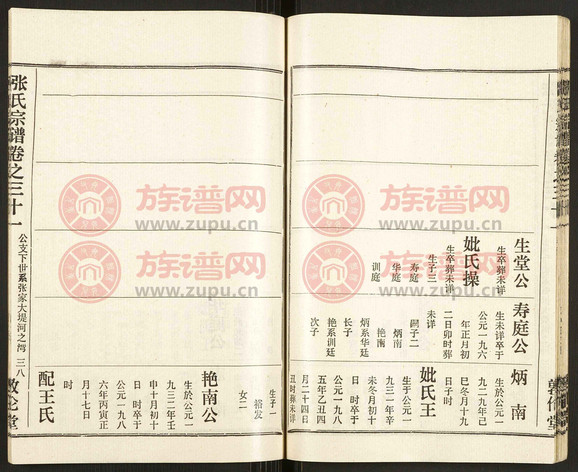 生堂公
生卒葬未详
妣氏操
生卒葬未详
生子三
寿庭
华庭
训庭
寿庭公
生未详卒于
公元一九六
年正月初
二日卯时葬
未详
嗣子二
炳南
艳南
炳系华廷
长子
艳系训廷
次子
炳南
生於公元一
九二九年己
巳冬月十九
日子时
妣氏王
生于公元一
九三一年辛
未冬月初十
日时卒于
公元一九八
五年乙丑四
月二十四日
丑时葬未详
生子一
裕发
女二
艳南公
生於公元一
九三二年壬
申十月初十
日时卒于
公元一九八
六年丙寅正
月十七日
时
配王氏
张氏宗谱卷之三十一
公支下世系张家大堤河之湾
三八
敦伦堂
族谱网
www.zupu.cn
族谱网
www.zupu.cn
族谱网
www.zupu.cn
族谱网
www.zupu.cn